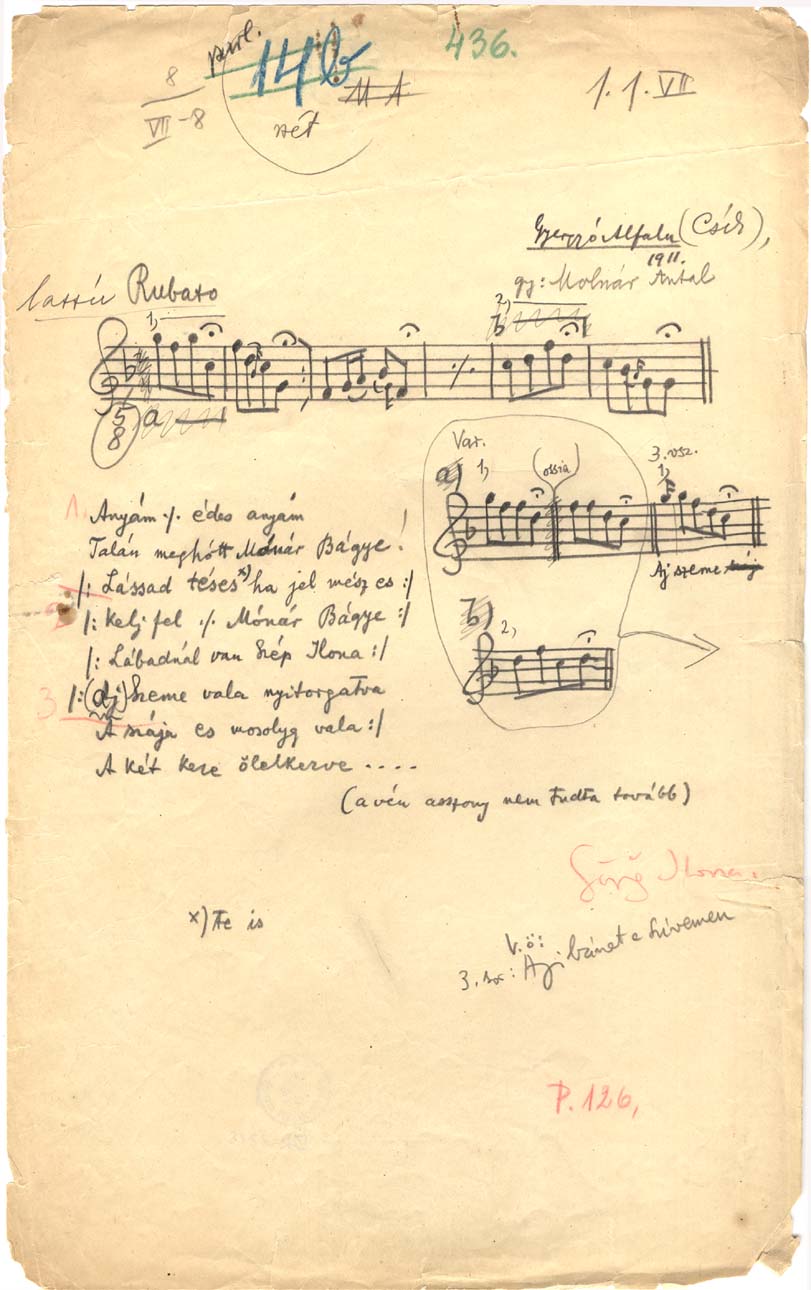 parl.
14b
436.
8
VII-8
M A
1.1.VII
Gyergyó Alfalu (Csík),
1911.
gy: Molnár Antal
lassú Rubato
1)
2)
b
5
8
a
Var.
a) 1)
(ossia)
3. vsz.
1)
Aj szeme szája
b)
2)
1. Anyám ·/· édes anyám
Talán meghótt Mónár Bágye!
/: Lássad téses x) ha jel mész es :/
2. /: Kelj fel ·/· Mónár Bágye :/
/: Lábadnál van Szép Ilona :/
3 /: (Aj) Szeme vala nyitorgatva
A szája es mosolyg vala :/
A két keze ölelkezve ....
(a vén asszony nem tudta tovább)
Ilona.
x) Te is
V.ö:
bánat a szívemen
P. 126,